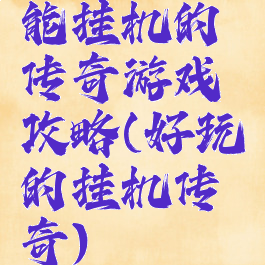 能挂机的
传奇游戏
攻略(好玩
的挂机传
奇)